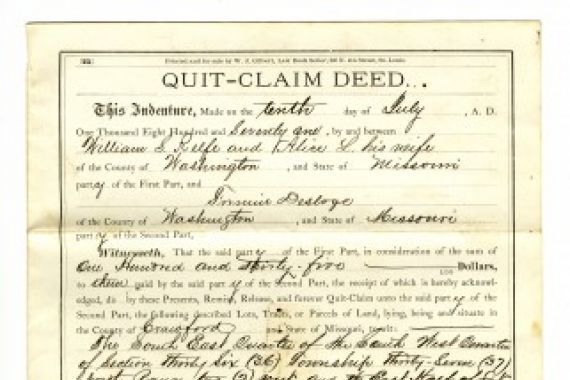 Printed and for sale by W. J. Gilbert, Law Book Seller, St. Louis.
QUIT-CLAIM DEED.
This Indenture, Made on the tenth day of July, A. D.
One Thousand Eight Hundred and Seventy one, by and between
William S. Relfe and Alice L. his wife
of the County of Washington, and State of Missouri
party of the First Part, and
Firmin Desloge
of the County of Washington, and State of Missouri
party of the Second Part,
Witnesseth, That the said party of the First Part, in consideration of the sum of
One Hundred and thirty-five Dollars,
to them paid by the said party of the Second Part, the receipt of which is hereby acknowl-
edged, do by these Presents, Remise, Release, and forever Quit-Claim unto the said party of the
Second Part, the following described Lots, Tracts, or Parcels of Land, lying, being and situate in
the County of Crawford and State of Missouri, to-wit:
The South East Quarter of the South West Quarter
of Section thirty Six (36) Township thirty-Seven (37)